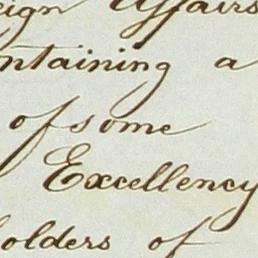 eign Affairs
ntaining a
of some
Excellency
olders of